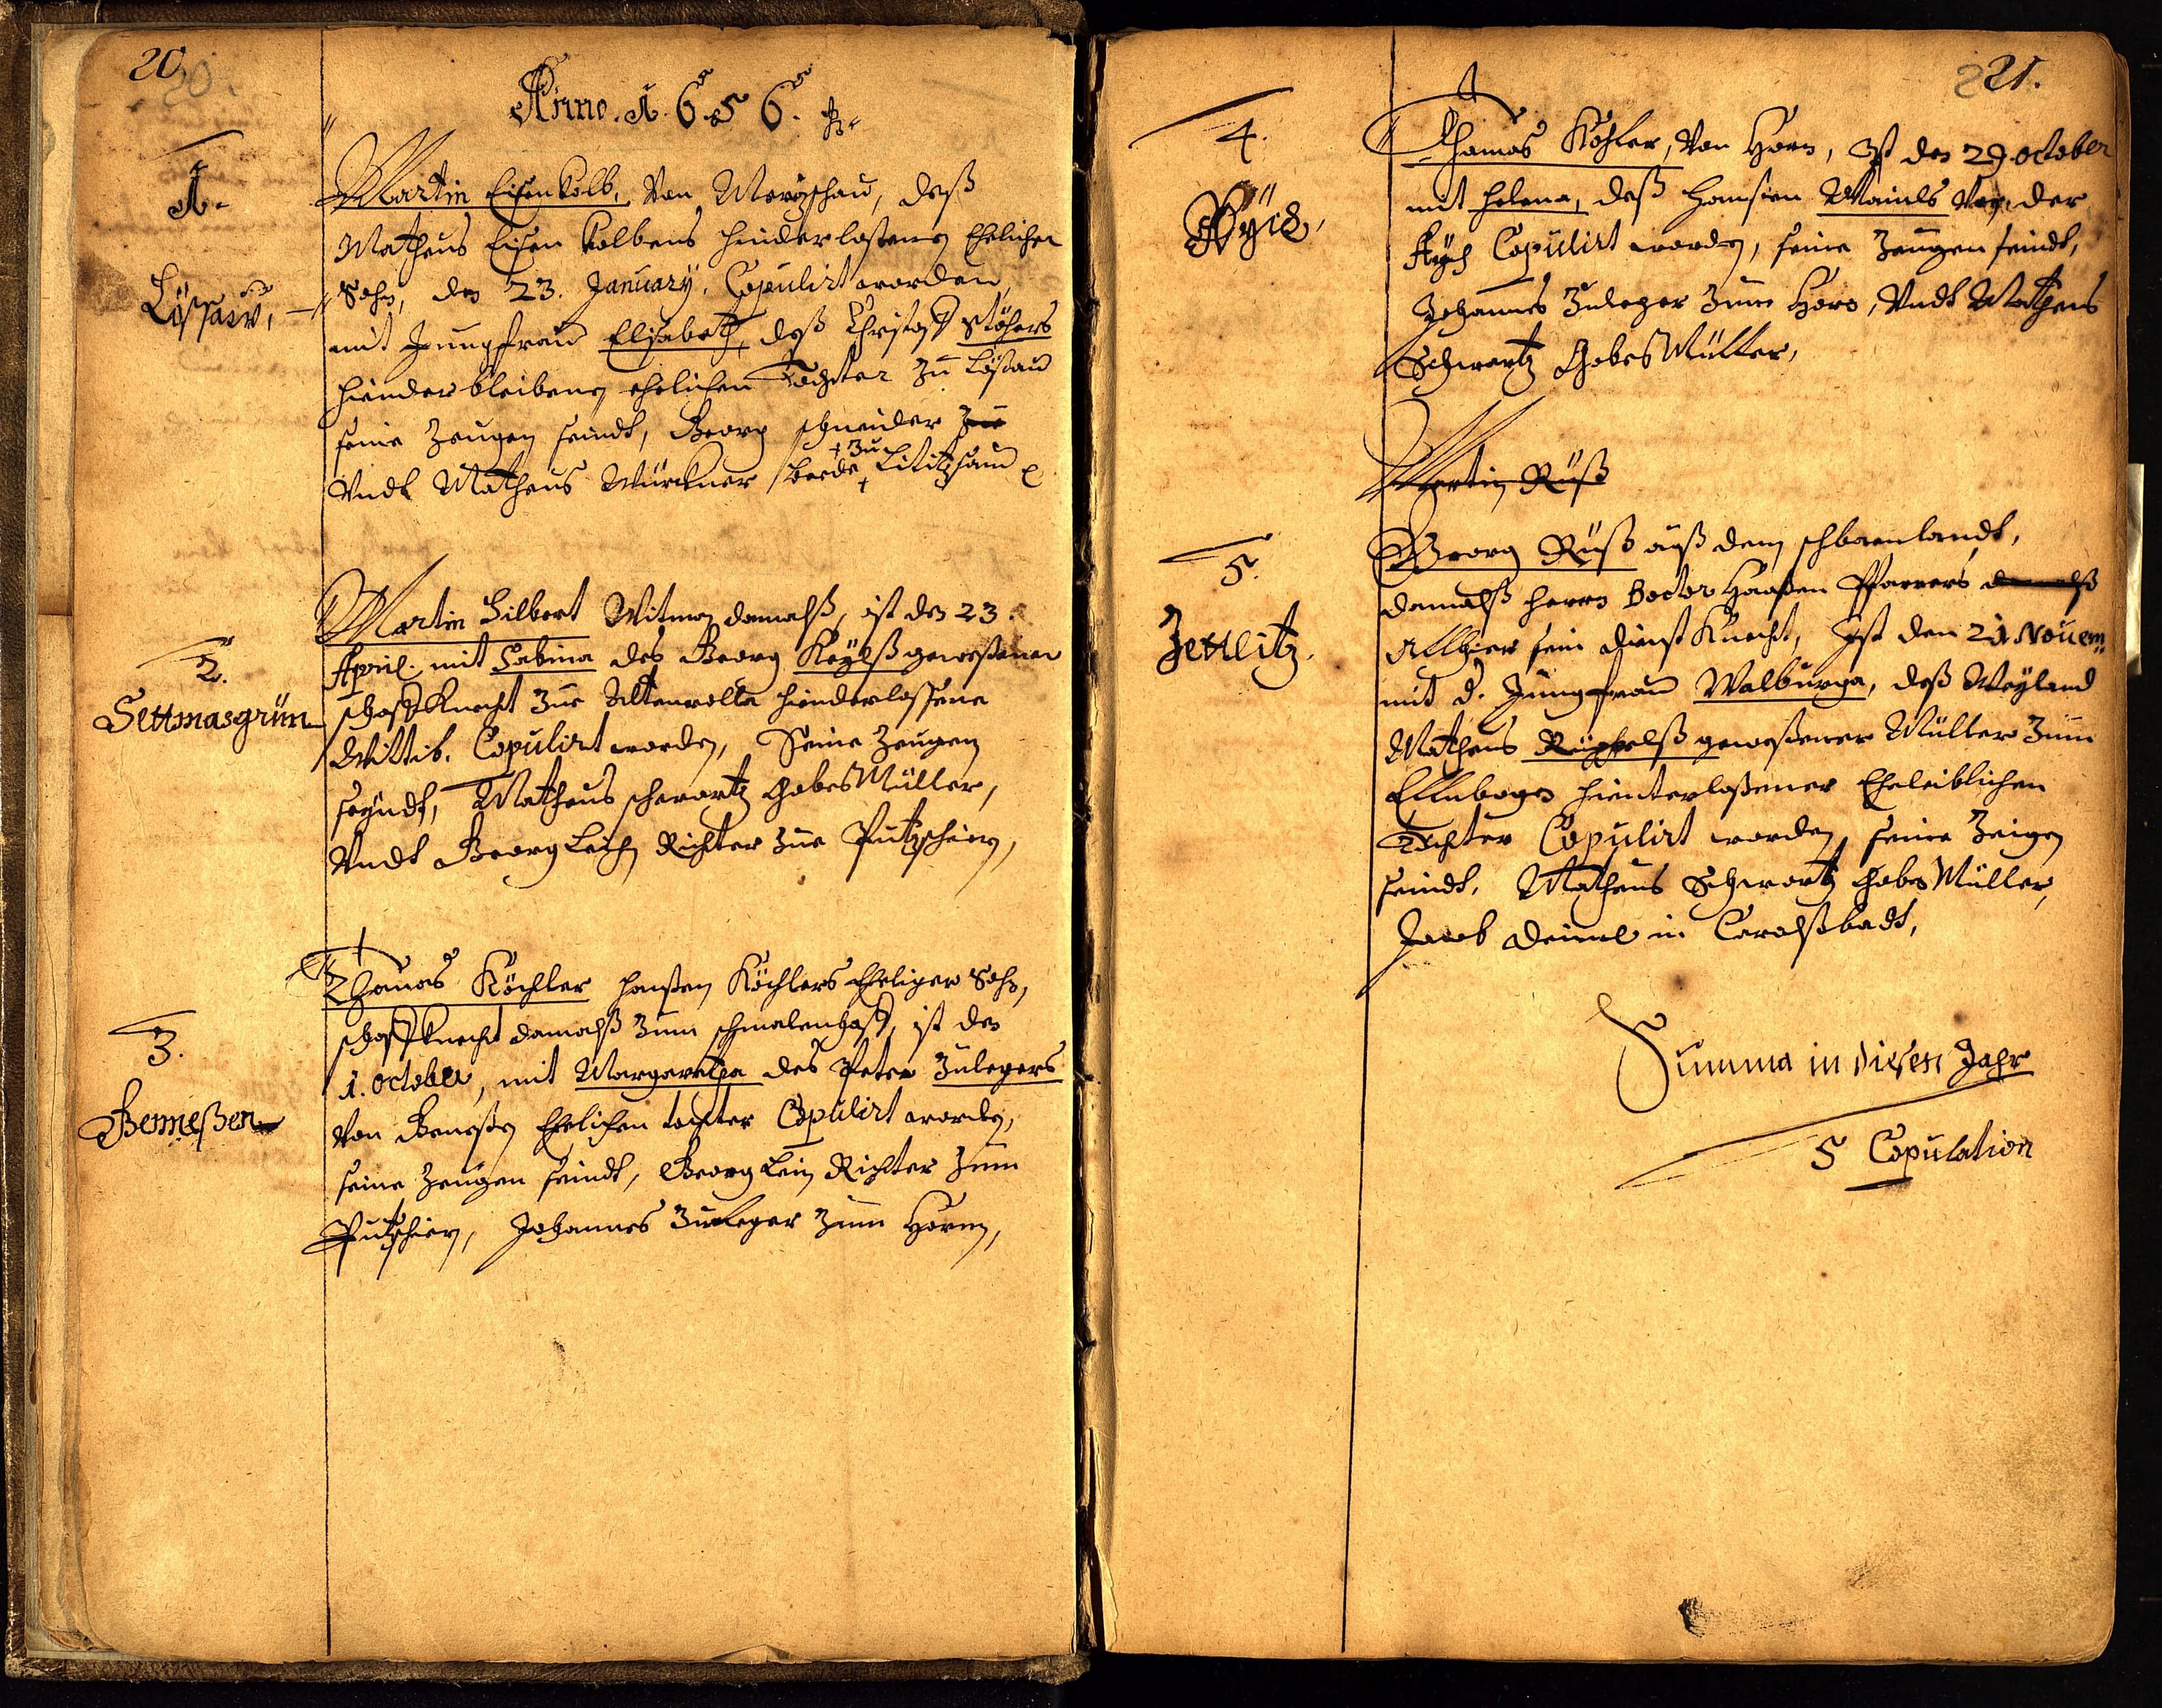 20.
Anno. 1. 6. 5 6.
1.
Lössaw,
Martin Eisenkolb, Von Meretschau, deß
Matheus Eisen Kolbens hinderlaßeney Ehelicher
Sohn, den 23. January, Copulirt worden,
mit Jungfrau Elisabeth, deß Christoff Stöhers
hinderbleibeney ehelichen Tochter Zu Lößau
seine Zeugen seindt, Georg schneider Zue
+ Zu
Vndt Matheus Würckner beede +
2.
Settmasgrün
Martin Silbert Witmon damalß, ist den 23.
April. mit Sabina des Georg Keylß geweßener
schoffknecht Zue Altenrolla hinderlassene
Wittib. Copulirt worden, Seine Zeugen
seyndt, Matheus schwartz GabesMüller,
Vndt Georg Leich Richter Zue Putzschirn,
3.
Benneßen
Thomas Köchler hanßen Köchlers Eheliger Sohn,
schoffknecht damalß Zum schmalenhoff, ist den
1. October, mit Margaretha des Peter Zulegers
Von Beneßen Ehelichen tochter Copulirt worden,
seine Zeugen seindt, Georg Leich Richter Zum
Putschirn, Johannes Zuleger Zum Horn,
21.
4.
Aÿch,
Thomas Köhler, Von Horn, Ist den 29. october
mit helena, deß Hansen Mainls Von der
Aÿch Copulirt worden, seine Zeugen seindt,
Johannes Zuleger Zum Horn, Vndt Matheus
Schwartz GabesMüller,
Martin Ruß
5.
Zettlitz.
Georg Ruß auß dem schbaenlandt,
damalß herrn Doctor Haaßen Pfarrers damalß
Allhier sein dienst Knecht, Ist den 21 Nouem:
mit d. Jungfrau Walburga, deß Weyland
Matheus geweßener Müller Zum
Ellnbogn hinterlaßener Eheleiblichen
Tochter Copulirt worden, seine Zeigen
seindt, Matheus Schwartz GabesMüller,
Jacob Deiml in Carolßbadt,
Summa in disen Jahr
5 Copulation